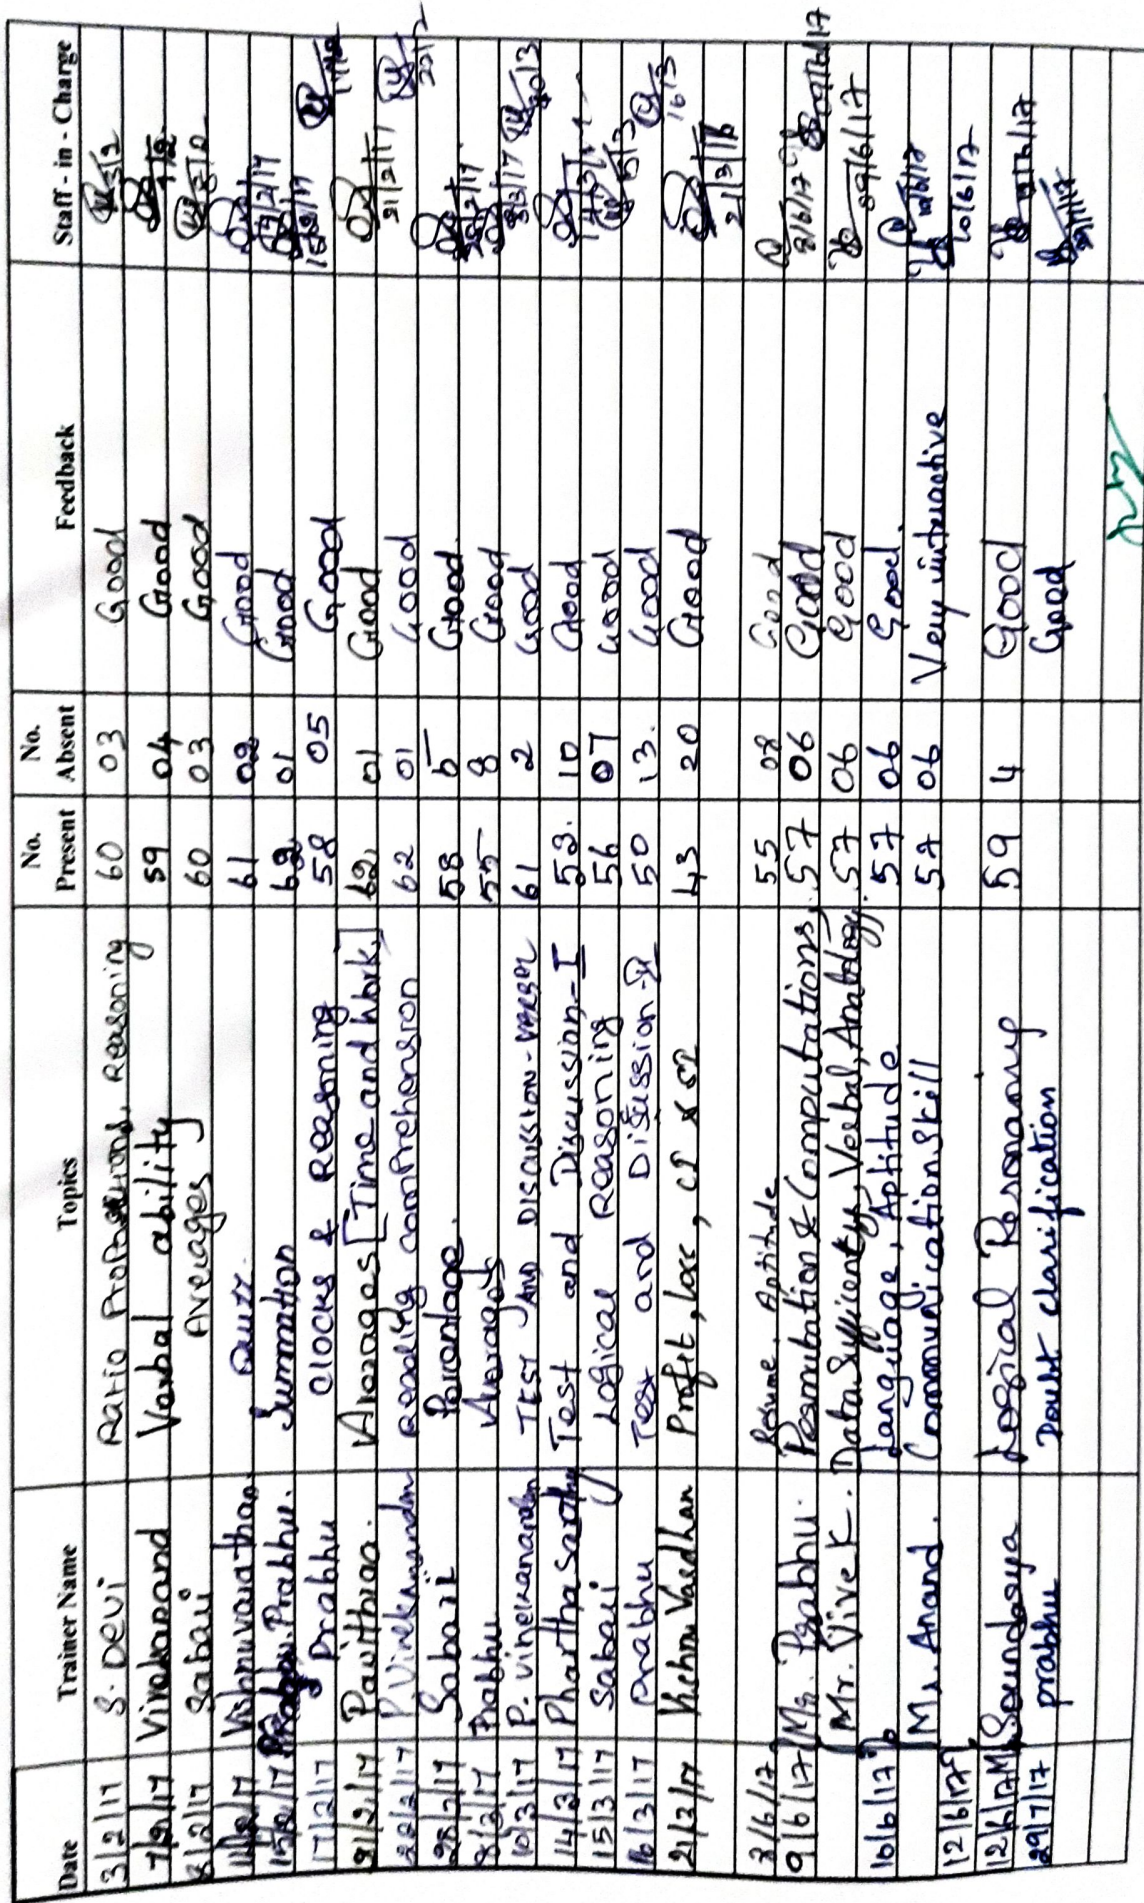 Date Trainer Name Topics No. Present No. Absent Feedback Staff - in - Charge
3/2/17 S. Devi Ratio Proportions, Reasoning 60 03 Good 3/2
7/2/17 Vivekanand Verbal ability 59 04 Good 7/2
8/2/17 Sabari Averages 60 03 Good 8/2
Vishnuvarathan 61 02 Good
15/2/17 Prabhu. Summation 62 01 Good 15/2/17
17/2/17 Prabhu Clocks & Reasoning 58 05 Good
21/2/17 Pavithraa. Averages [Time and Work] 62 01 Good 21/2/17
22/2/17 P. Vivekanandan Reading comprehension 62 01 Good 22/2
Sabari Percentage. 58 5 Good
8/3/17 Prabhu Averages 55 8 Good 8/3/17
10/3/17 P. Vivekanandan Test and Discussion - Verbal 61 2 Good 10/3
14/3/17 Phartha Sarathy Test and Discussion - I 53. 10 Good
15/3/17 Sabari Logical Reasoning 56 07 Good 15/3
16/3/17 Prabhu Test and Discussion - II 50 13. Good 16/3
21/3/17 Vishnu Vardhan Profit, loss, CI & SI 43 20 Good
8/6/17 Resume, Aptitude 55 08 Good 8/6/17
9/6/17 Mr. Prabhu. Permutation & Computations, 57 06 Good
Mr. Vivek. Data Sufficiency, Verbal, Analogy. 57 06 Good 09/6/17
10/6/17 Language, Aptitude 57 06 Good. 10/6/17
Mr. Anand. Communication Skill 57 06 Very interactive 10/6/17
12/6/17
12/6/17 Ms. Soundarya Logical Resonaing 59 4 Good 12/6/17
29/7/17 prabhu Doubt clarification Good 29/7/17